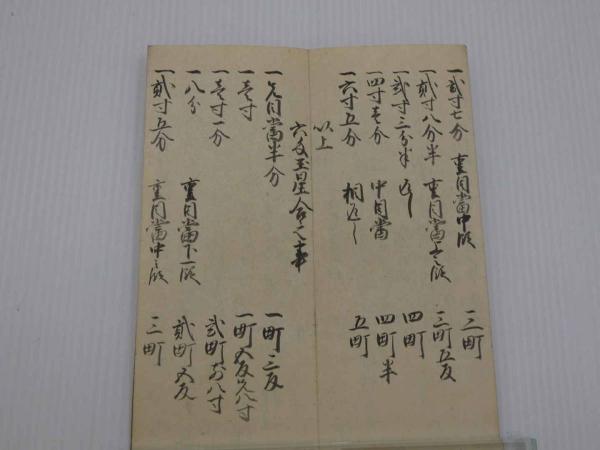 一 弐寸七分 重目當中段 三町
一 弐寸八分半 重目當上之段 三町五反
一 弐寸三分半 返し 四町
一 四寸壱分 中目當 四町半
一 六寸五分 相返し 五町
以上
六匁玉星合之事
一 先目當半分 一町三反
一 壱寸 一町五反 八寸
一 壱寸一分 弐町 八寸
一 八分 重目當下一段 弐町五反
一 弐寸五分 重目當中之段 三町